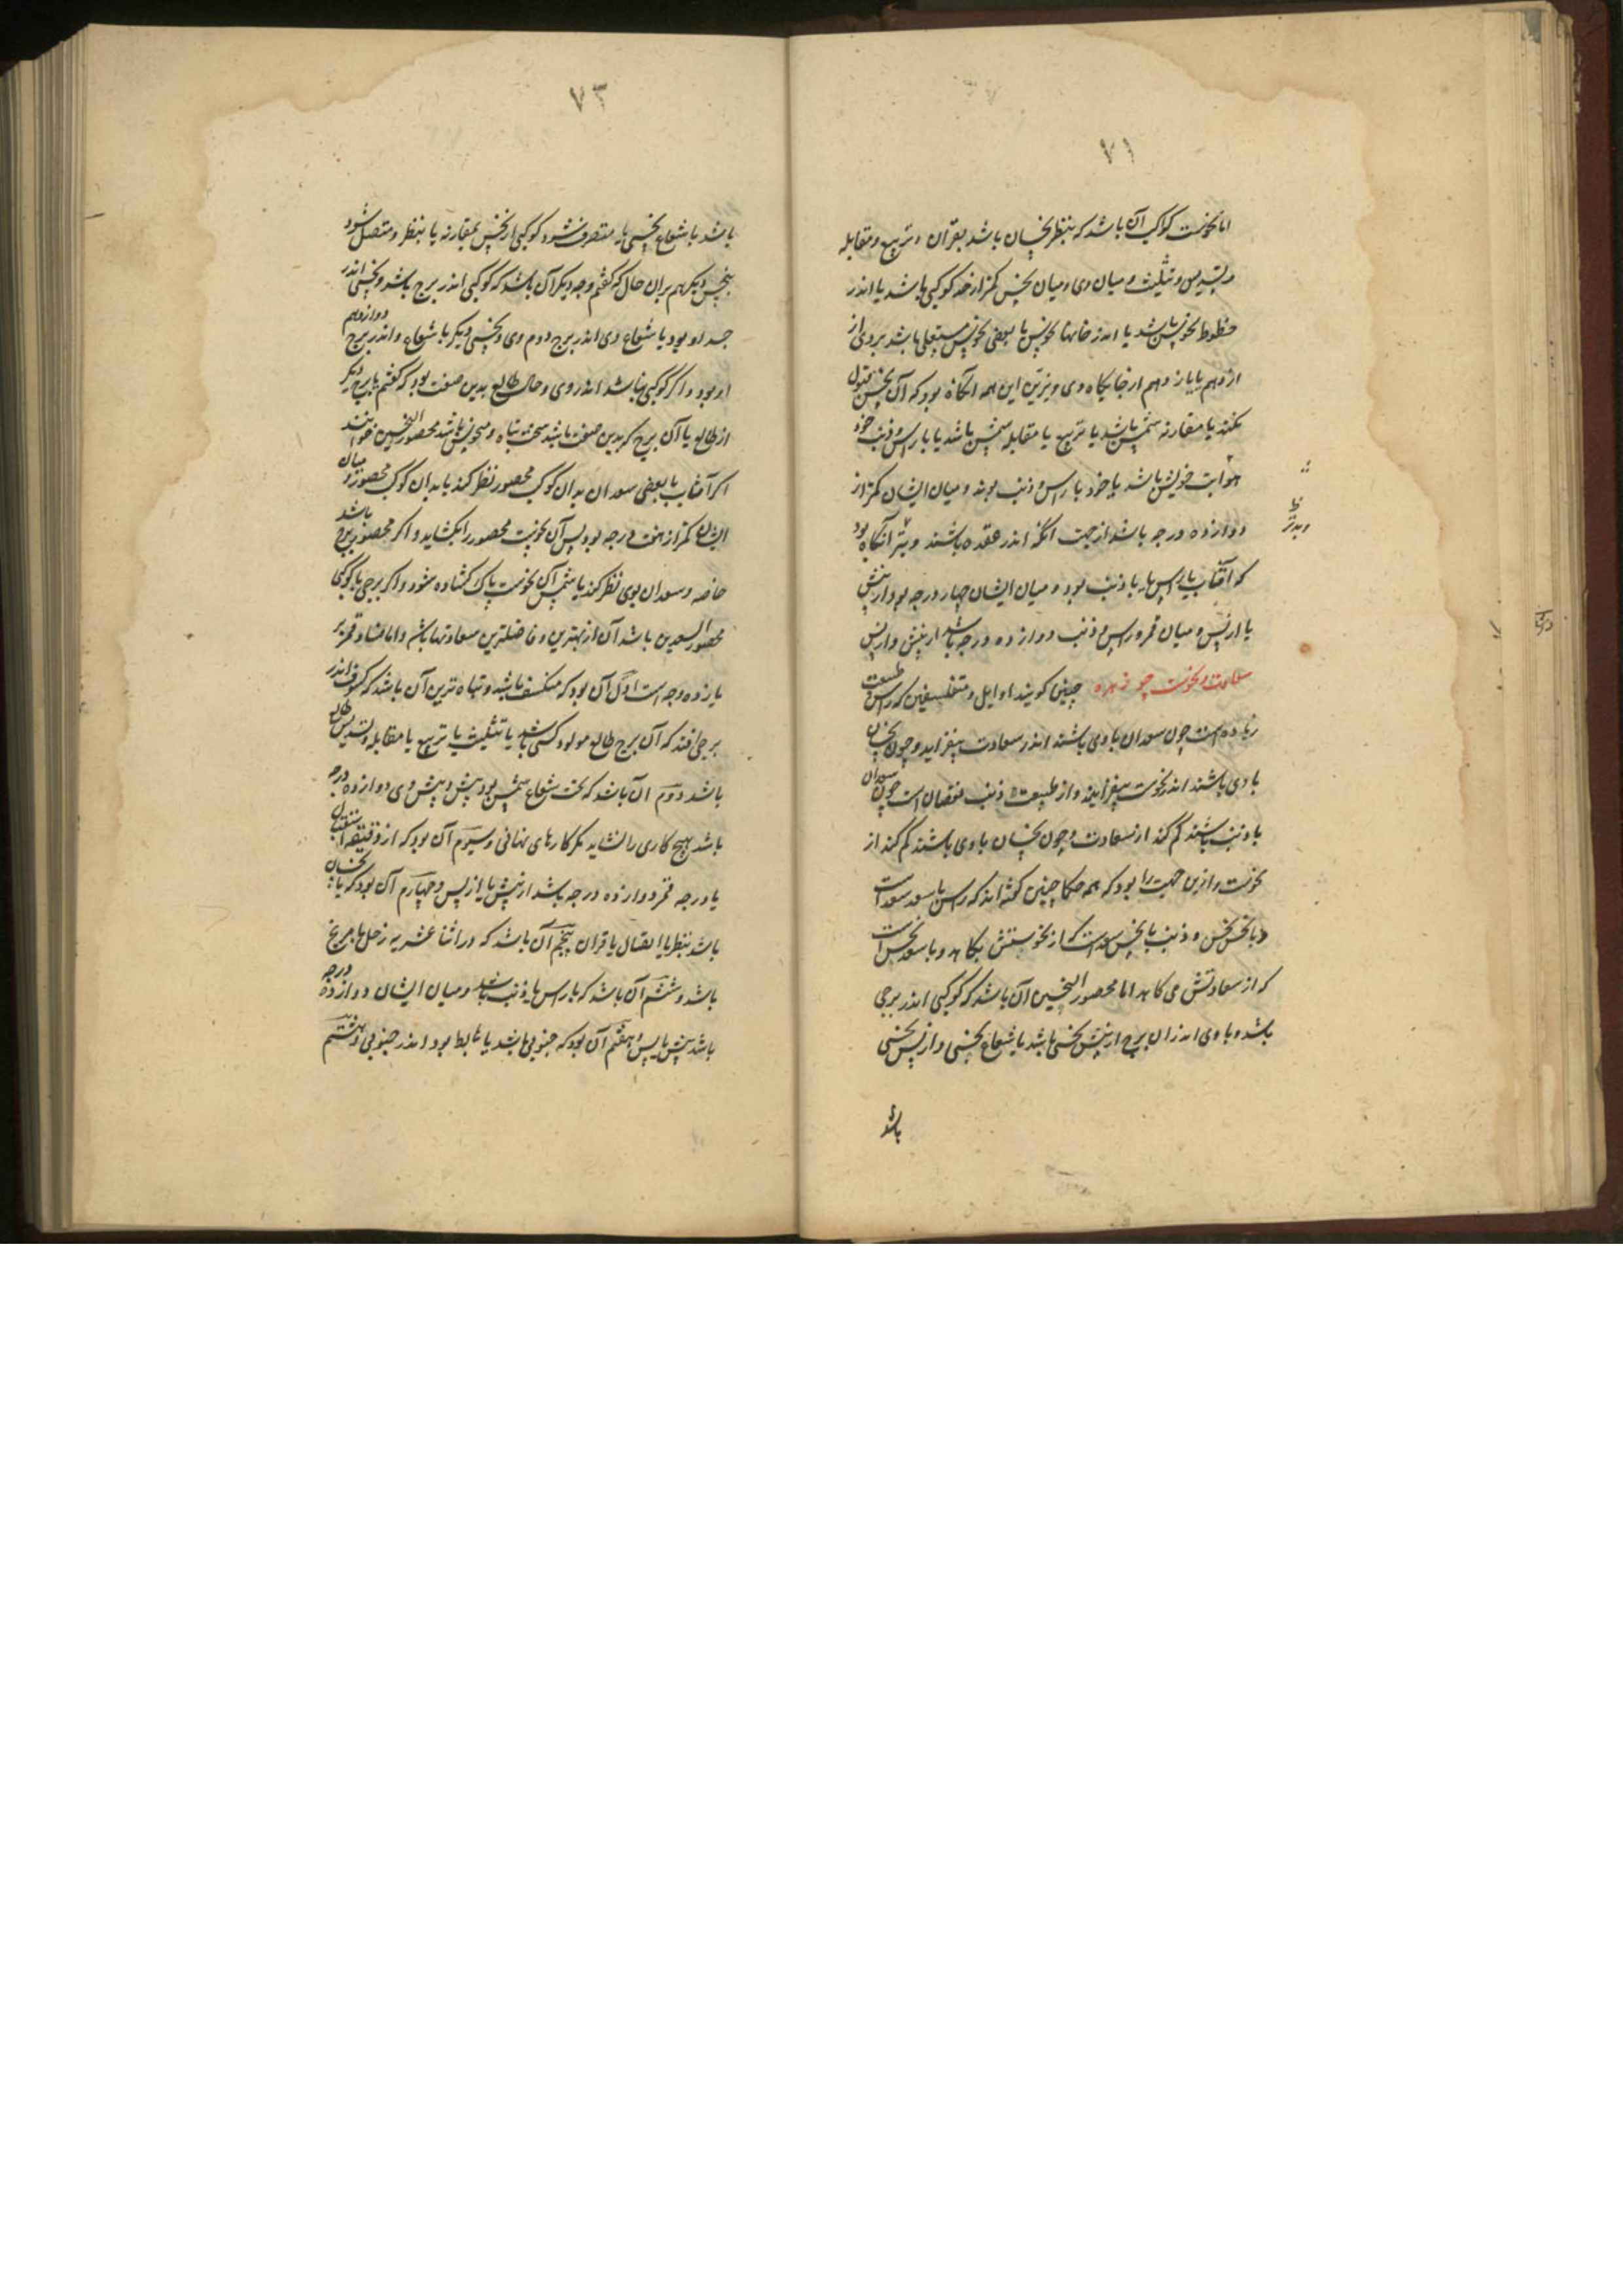 ۷۱
اما نحوست کواکب آن باشد که بنظر نحسان باشد بقران و تربیع و مقابله
و تسدیس و تثلیث و میان وی و میان نحس کمتر از حد کوکبی باشد یا اندر
حظوظ نحوس باشد یا اندر خانهاء نحوس یا بعضی نحوس مستعلی باشد بر وی از
از دهم یا یازدهم از جایکاه وی و بترین این همه آنکاه بود که آن نحس قبول
نکند یا مقارنه شمس باشد یا تربیع یا مقابله شمس باشد یا با راس و ذنب خود
خویش باشد یا خود با راس و ذنب بوند و میان ایشان کمتر از
دوازده درجه باشد از جهت آنکه اندر عقده باشند و بتر آنکاه بود
که آفتاب با راس یا با ذنب بود و میان ایشان چهار درجه بود از پیش
یا از پس و میان قمر و راس و ذنب دوازده درجه باشد از پیش و از پس
سعادت و نحوست جوزهره چنین کویند اوایل و متفلسفین که راس طبیعت
زیاده است چون سعدان با وی باشند اندر سعادت بیفزاید و چون نحسان
با وی باشند اندر نحوست بیفزایند و از طبیعت ذنب نقصان است چون سعدان
با ذنب باشند کم کند از سعادت و چون نحسان با وی باشند کم کند از
نحوست و ازین جهت را بود که همه حکما چنین کفته اند که راس با سعد سعد است
و با نحس نحس و ذنب با نحس سعد است که از نحوستش بکاهد و با سعد نحس است
که از سعادتش می کاهد اما محصور النحسین آن باشد که کوکبی اندر برجی
باشد و با وی اندر آن برج از پیش نحسی باشد یا شعاع نحسی و از پس نحسی
باشد
وبدتر
۷۳
باشد یا شعاع نحسی یا منصرف شود کوکبی از نحس بمقارنه یا بنظر و متصل شود
بنحس دیکر هم بران حال که کفتم وجه دیکر آن باشد که کوکبی اندر برج باشد و نحسی اندر
جسد او بود یا شعاع وی اندر برج دوم وی و نحسی دیکر یا شعاع و اندر برج دوازدهم
او بود و اکر کوکبی نباشد اندر وی و حال طالع بدین صفت بود که کفتم یا برج دیکر
از طالع یا آن برج که بدین صفت باشد سخت تباه و منحوس باشد محصور النحسین خوانند
اکر آفتاب یا بعضی سعدان بدان کوکب محصور نظر کند یا بدان کوکب محصور و میان
ایشان کمتر از هفت درجه بود پس آن نحوست محصور را بکشاید و اکر محصور برج باشد
خاصه و سعدان بوی نظر کند یا شمس آن نحوست پاک کشاده شود و اکر برجی یا کوکبی
محصور السعدین باشد آن از بهترین و فاضلترین سعادتها باشد و اما فساد قمر بر
یازده وجه است اول آن بود که منکسف باشد و تباه ترین آن باشد که کسوف اندر
برجی افتد که آن برج طالع مولود کسی باشد یا تثلیث یا تربیع یا مقابله و تسدیس طالع
باشد دوم آن باشد که تحت شعاع شمس بود پیش و پس وی دوازده درجه
باشد هیچ کاری را نشاید مکر کارهای نهانی و سیوم آن بود که از دقیقه استقبال
یا درجه قمر دوازده درجه باشد از پیش یا از پس و چهارم آن بود که با نحسان
باشد بنظر یا اتصال یا قران پنجم آن باشد که در اثنا عشریه زحل یا مریخ
باشد و ششم آن باشد که با راس یا ذنب باشد و میان ایشان دوازده درجه
باشد پیش یا پس و هفتم آن بود که جنوبی باشد یا هابط بود اندر جنوبی و هشتم